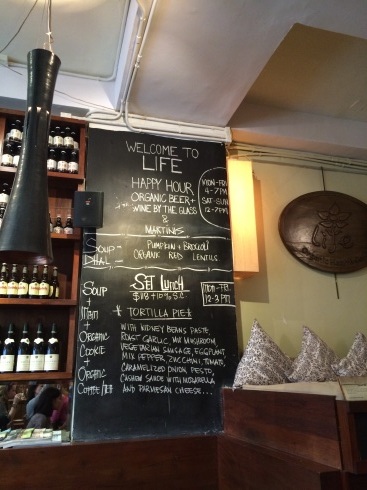 WELCOME TO
LIFE
HAPPY HOUR
ORGANIC BEER +
WINE BY THE GLASS
&
MARTINIS
MON-FRI
4-7PM
SAT-SUN
12-7PM
SOUP - PUMPKIN + BROCCOLI
DHAL - ORGANIC RED LENTILS
SET LUNCH
$118 + 10% S.C.
MON-FRI
12-3 PM
SOUP
+
MAIN
+
ORGANIC
COOKIE
+
ORGANIC
COFFEE/TEA
* TORTILLA PIE *
WITH KIDNEY BEANS PASTE,
ROAST GARLIC, MIX MUSHROOM,
VEGETARIAN SAUSAGE, EGGPLANT,
MIX PEPPER, ZUCCHINI, TOMATO,
CARAMELIZED ONION, PESTO,
CASHEW SAUCE WITH MOZZARELLA
AND PARMESAN CHEESE...